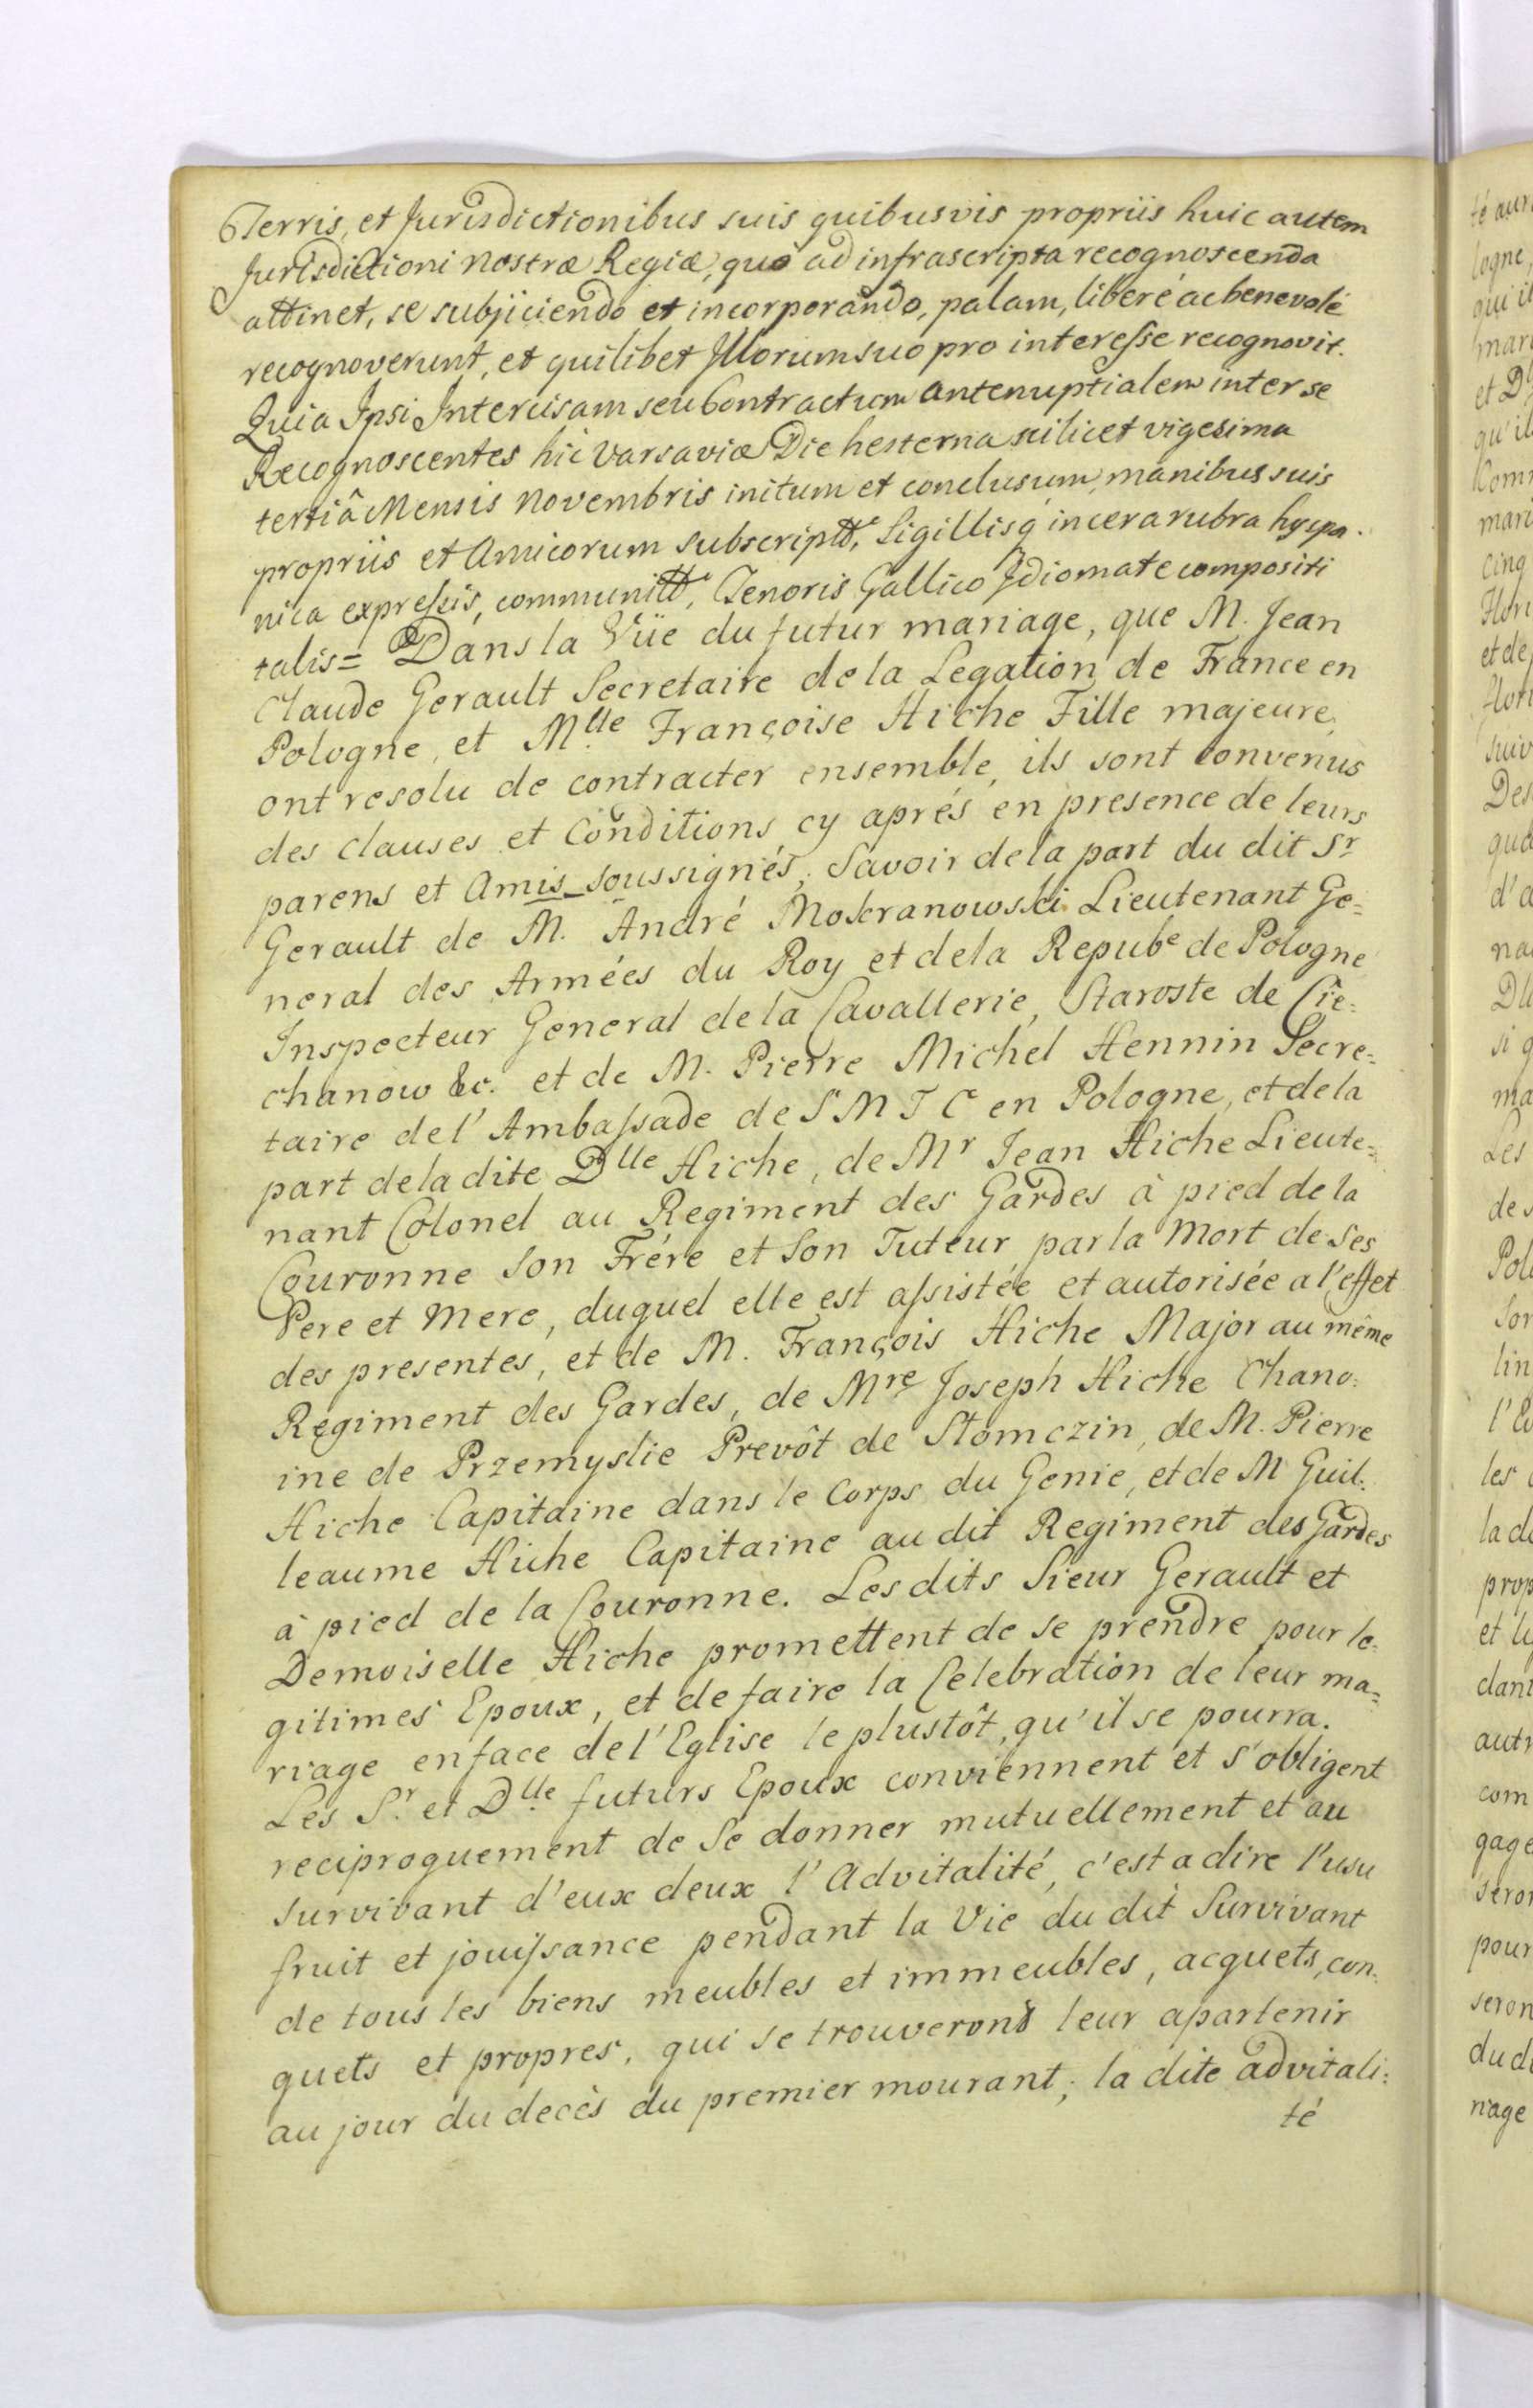 Terris, et Jurisdictionibus suis quibusvis propriis huic autem
Jurisdictioni nostræ Regiæ, quò ad infrascripta recognoscenda
attinet, se subjiciendo et incorporando, palam, liberé ac benevolé
recognoverunt, et quilibet Illorum suo pro interesse recognovit.
Quia Ipsi Intercisam seu Contractum antenuptialem inter se
Recognoscentes hic Varsaviæ Die hesterna scilicet vigesima
tertiâ Mensis Novembris initum et conclusum, manibus suis
propriis et Amicorum subscriptt, Sigillisq in cera rubra hyspa.
nica expressis, communitt, Tenoris Gallico Idiomate compositi
talis= Dans la Vüe du futur mariage, que M. Jean
Claude Gerault Secretaire de la Legation de France en
Pologne, et Mlle Françoise Hiche Fille majeure,
ont resolu de contracter ensemble, ils sont convenus
des clauses et Conditions cy aprés en presence de leurs
parens et Amis soussignés, Savoir de la part du dit Sr
Gerault de M. André Mokranowski Lieutenant Ge=
neral des Armées du Roy et de la Repube de Pologne
Inspecteur General de la Cavallerie, Staroste de Cie=
chanow &c. et de M. Pierre Michel Hennin Secre=
taire de l'Ambassade de S M T C en Pologne, et de la
part de la dite Dlle Hiche, de Mr Jean Hiche Lieute=
nant Colonel au Regiment des Gardes à pied de la
Couronne son Frére et Son Tuteur par la Mort de Ses
Pere et Mere, duquel elle est assistée et autorisée a l'effet
des presentes, et de M. François Hiche Major au même
Regiment des Gardes, de Mre Joseph Hiche Chano=
ine de Przemyslie Prevôt de Slomczin, de M. Pierre
Hiche Capitaine dans le Corps du Genie, et de M Guil=
leaume Hiche Capitaine au dit Regiment des Gardes
à pied de la Couronne. Les dits Sieur Gerault et
Demoiselle Hiche promettent de se prendre pour le=
gitimes Epoux, et de faire la Celebration de leur ma=
riage en face de l'Eglise le plustôt, qu'il se pourra.
Les Sr et Dlle futurs Epoux conviennent et s'obligent
reciproquement de Se donner mutuellement et au
survivant d'eux deux l'Advitalité, c'est a dire l'usu
fruit et jouissance pendant la Vie du dit Survivant
de tous les biens meubles et immeubles, acquets, con=
quets et propres, qui se trouveront leur apartenir
au jour du decès du premier mourant; la dite advitali=
té